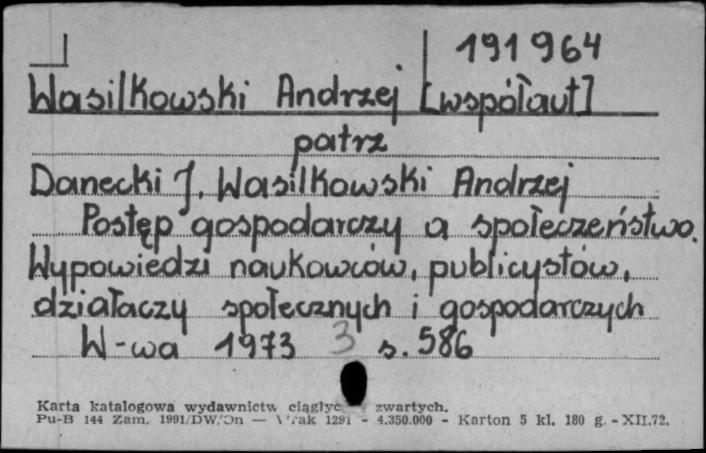 191964
Wasilkowski Andrzej [współaut]
patrz
Danecki J. Wasilkowski Andrzej
Postęp gospodarczy a społeczeństwo.
Wypowiedzi naukowców, publicystów,
działaczy społecznych i gospodarczych
W-wa 1973 3 s. 586
Karta katalogowa wydawnictw zwartych.
Pu-B 144 Zam. 1991/DW. — 1291 - 4.350.000 - Karton 5 kl. 180 g. - XII.72.